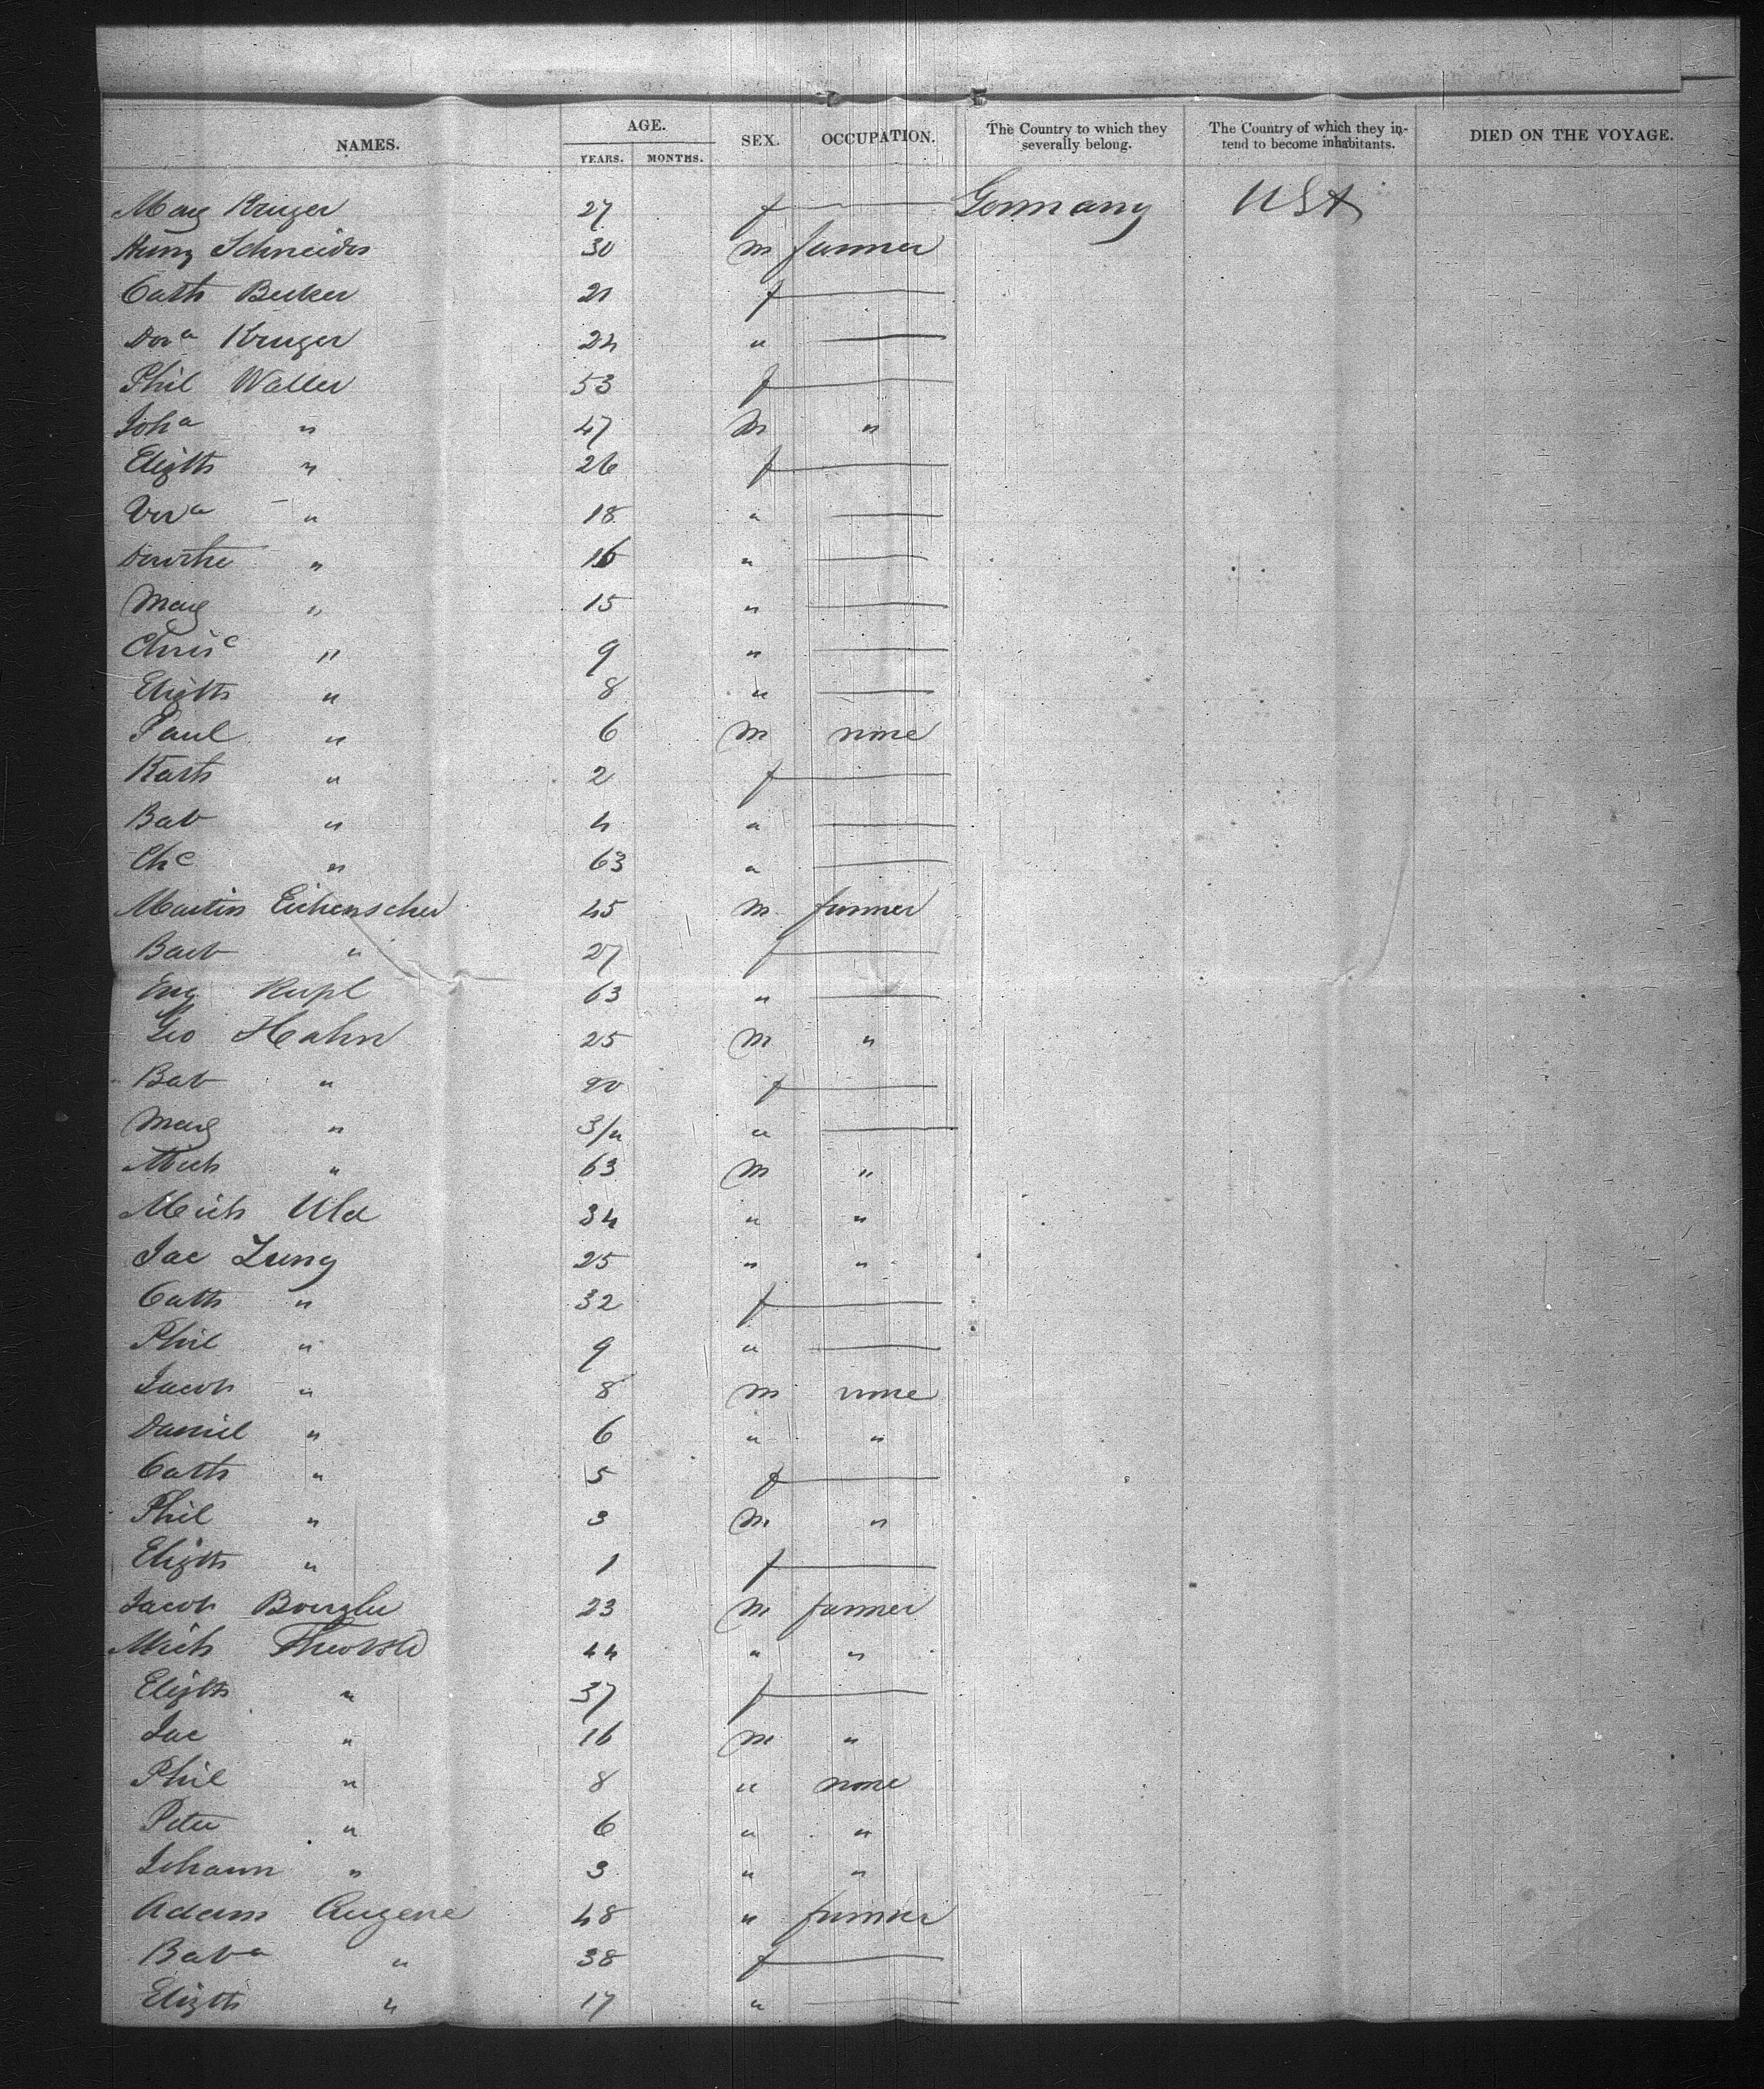 NAMES. AGE. SEX. OCCUPATION. The Country to which they severally belong. The Country of which they intend to become inhabitants. DIED ON THE VOYAGE.
YEARS. MONTHS.
Marg Kruger 27 f — Germany USA
Henry Schneider 30 m farmer
Cath Becker 21 f —
Dora Kruger 24 " —
Phil Waller 53 f —
Joha " 47 m "
Elizth " 26 f —
Vera " 18 " —
" 16 " —
Marg " 15 " —
Chrisc " 9 " —
Elizth " 8 " —
Paul " 6 m none
Kath " 2 f —
Bab " 4 " —
Chc " 63 " —
Martin Eichenscher 45 m farmer
Barb " 27 f —
63 " —
Geo Hahn 25 m "
Bab " 20 f —
Marg " 3/4 " —
Mich " 63 m "
Mich 34 " "
Jac Zung 25 " "
Cath " 32 f —
Phil " 9 " —
Jacob " 8 m none
Daniel " 6 " "
Cath " 5 f —
Phil " 3 m "
Elizth " 1 f —
Jacob 23 m farmer
Mich 44 " "
Elizth " 37 f —
Jac " 16 m "
Phil " 8 " none
Peter " 6 " "
Johann " 3 " "
Adam Augene 48 " farmer
Baba " 38 f —
Elizth " 17 " —